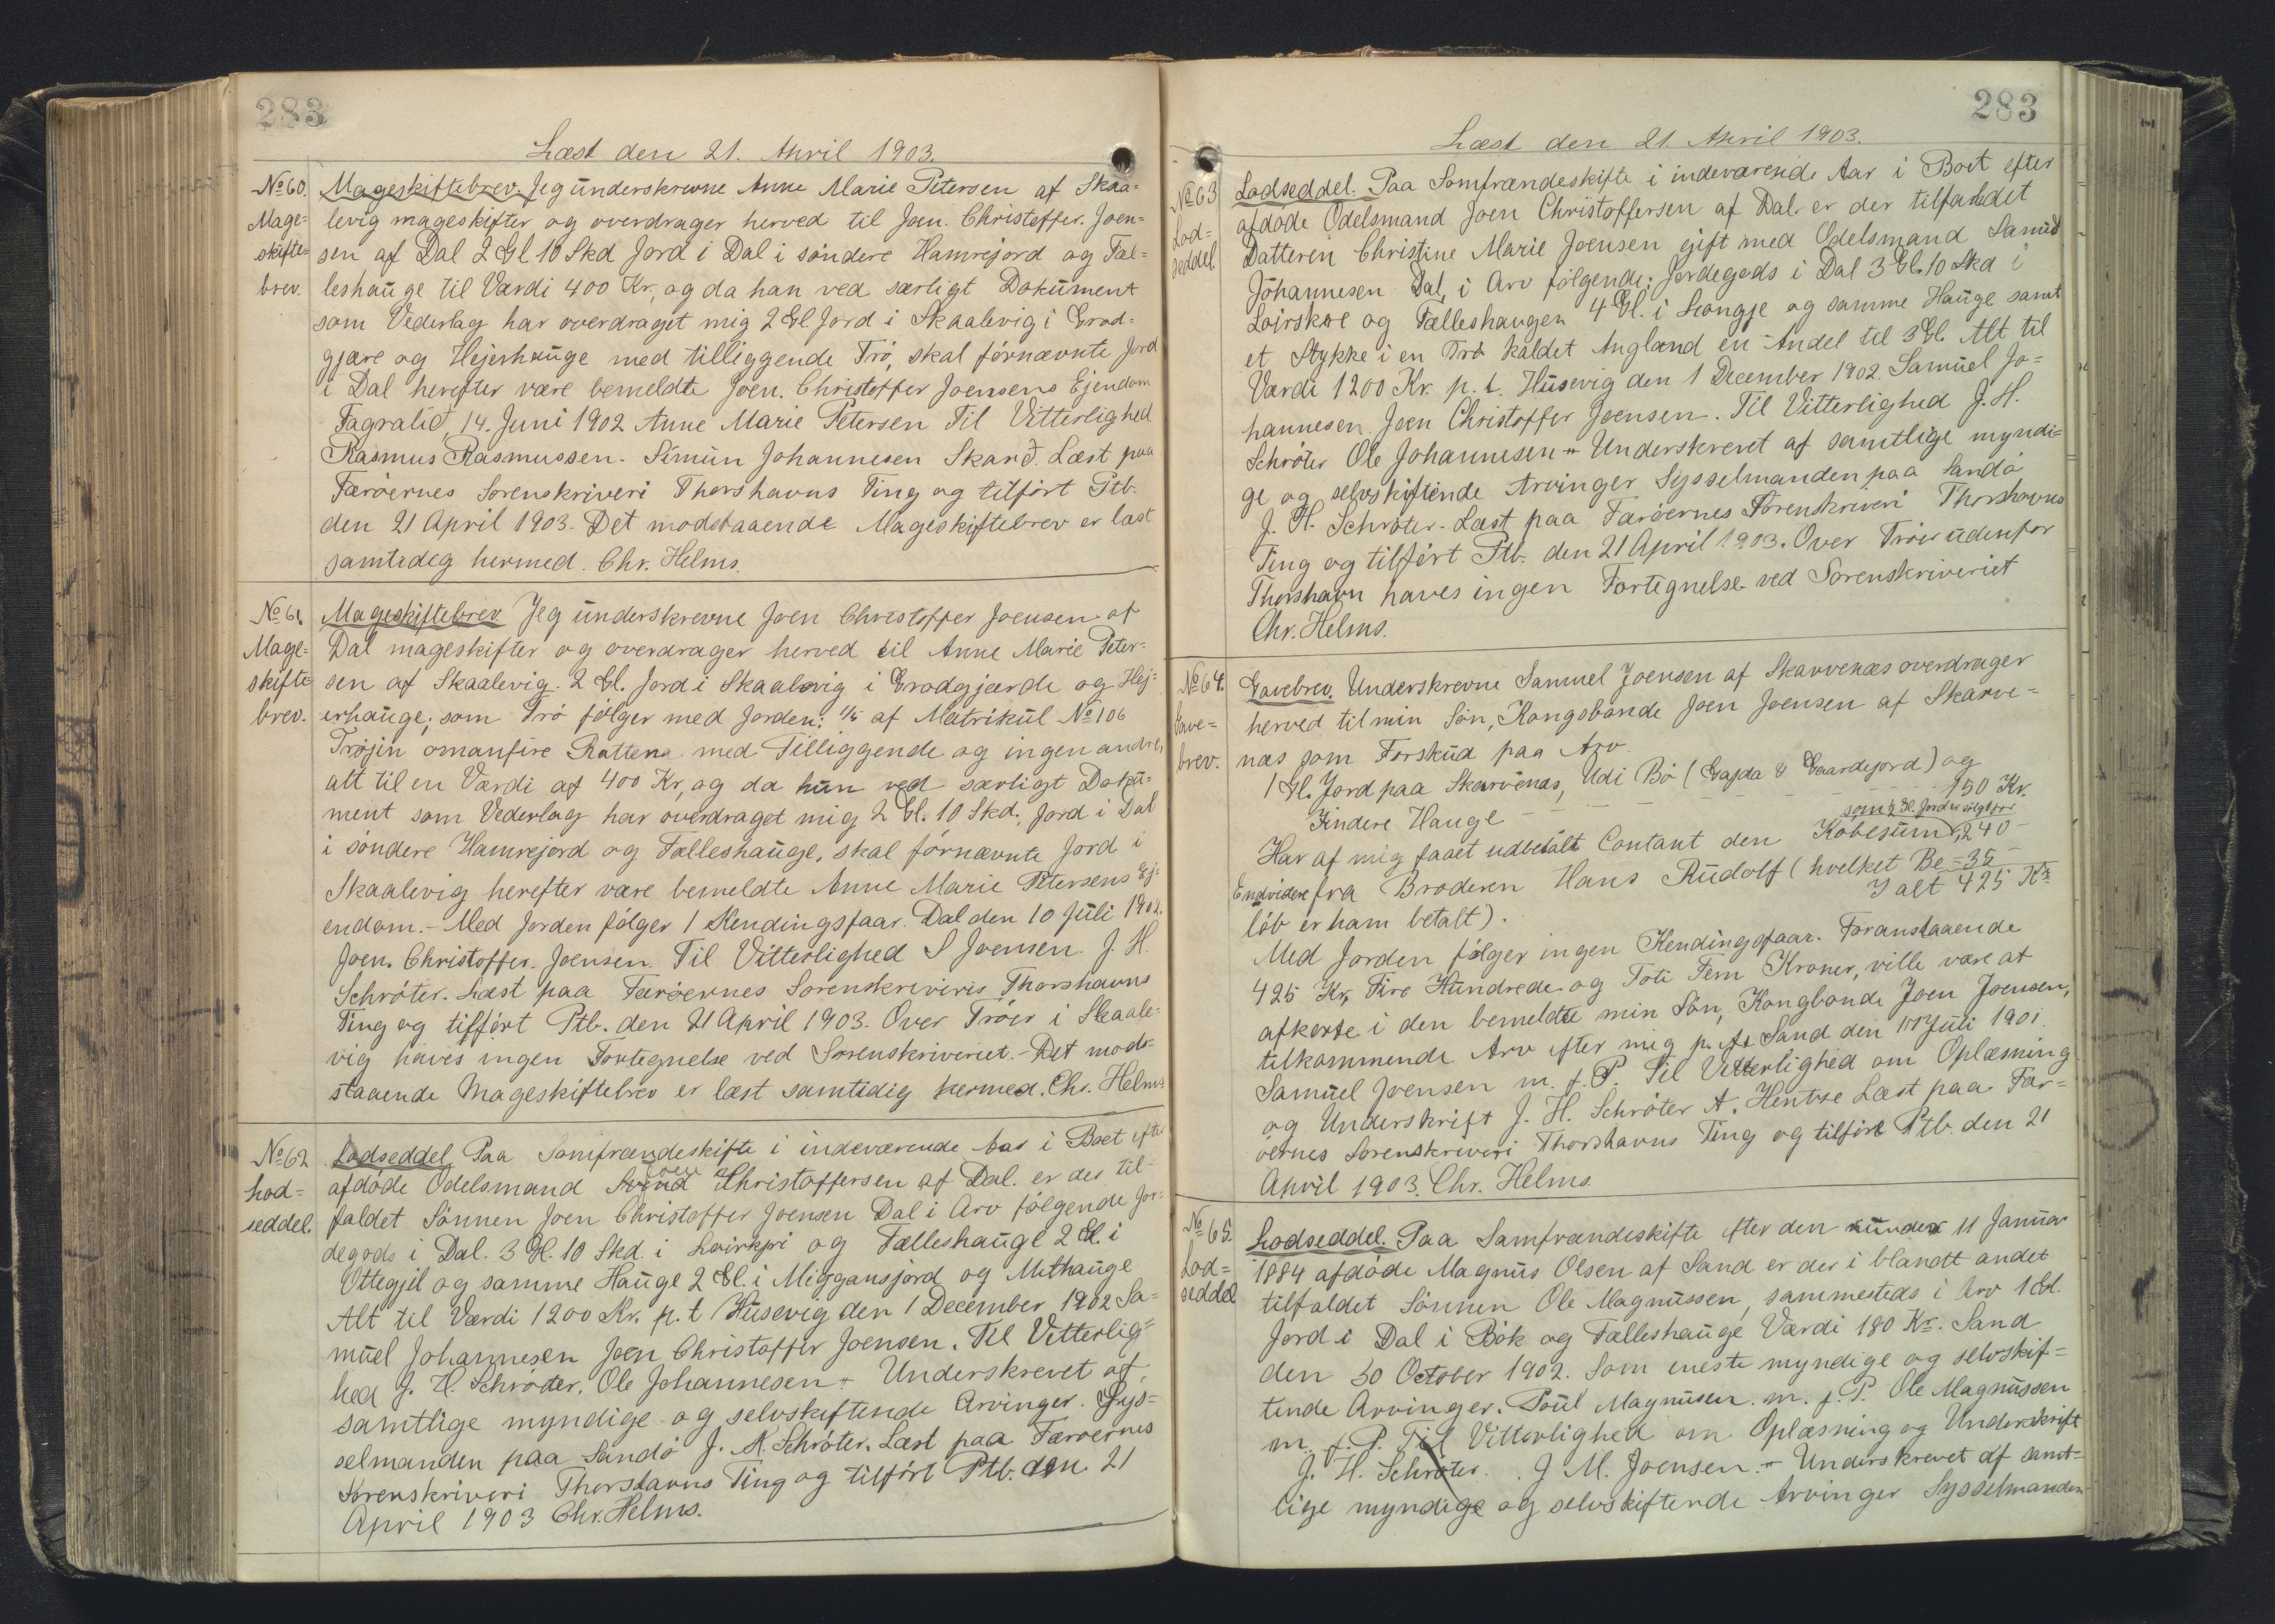 283
Læst den 21. April 1903.
No 60.
Mage=
skifte=
brev.
Mageskiftebrev. Jeg underskrevne Anne Marie Petersen af Skaa=
levig mageskifter og overdrager herved til Joen. Christoffer. Joen=
sen af Dal 2 Gl 10 Skd Jord i Dal i söndere Hamrejord og Fæl=
leshauge til Værdi 400 Kr, og da han ved særligt Dokument
som Vederlag har overdraget mig 2 Gl Jord i Skaalevig i Grod=
gjære og Hejerhauge med tilliggende Trö, skal fórnævnte Jord
i Dal herefter være bemeldte Joen. Christoffer Joensens Ejendom
Fagralid, 14. Juni 1902 Anne Marie Petersen Til Vitterlighed
Rasmus Rasmussen. Simun Johannesen Skarð. Læst paa
Færóernes Sorenskriveri Thorshavns Ting og tilfört Ptb.
den 21 April 1903. Det modstaaende Mageskiftebrev er læst
samtideg hermed. Chr. Helms.
No 61.
Mage=
skifte
brev.
Mageskiftebrev Jeg underskrevne Joen Christoffer Joensen af
Dal mageskifter og overdrager herved til Anne Marie Peter=
sen af Skaalevig. 2 Gl. Jord i Skaalevig i Grodgjærde og Hej=
erhauge; som Trö fölger med Jorden: 1/5 af Matrikul No 106
Tröjin omanfire Rættena med Tilliggende og ingen andre,
alt til en Værdi af 400 Kr, og da hun ved særligt Doku=
ment som Vederlag har overdraget mig 2 Gl. 10 Skd. Jord i Dal
i söndere Hamrejord og Fælleshauge, skal fórnævnte Jord i
Skaalevig herefter være bemeldte Anne Marie Petersens Ej=
endom. - Med Jorden fölger 1 Kendingsfaar. Dal den 10 Juli 1902.
Joen. Christoffer. Joensen. Til Vitterlighed S Joensen. J. H.
Schröter. Læst paa Færöernes Sorenskriveris Thorshavns
Ting og tilfört Ptb. den 21 April 1903. Over Tröer i Skaale-
vig haves ingen Fortegnelse ved Sorenskriveriet. - Det mod-
staaende Mageskiftebrev er læst samtidig hermed. Chr. Helms
No 62
Lod=
seddel.
Lodseddel Paa Samfrændeskifte i indeværende Aar i Boet efter
afdöde Odelsmand Joen Christoffersen af Dal. er der til-
faldet Sönnen Joen Christoffer Joensen Dal i Arv fölgende Jor=
degods i Dal. 3 Gl. 10 Skd. i Loirkpri og Fælleshauge 2 Gl. i
Ottegjil og samme Hauge 2 Gl. i Miggansjord og Methauge
Alt til Værdi 1200 Kr. p. t Husevig den 1 December 1902 Sa=
muel Johannesen Joen Christoffer Joensen. Til Vitterlig=
hed J. H. Schröter. Ole Johannesen - Underskrevet af
samtlige myndige og selvskiftende Arvinger. Sys=
selmanden paa Sandö J. H. Schröter. Læst paa Færöernes
Sorenskriveri Thorshavns Ting og tilfört Ptb. den 21
April 1903 Chr. Helms.
283
Læst den 21. April 1903.
No 63
Lod=
seddel.
Lodseddel. Paa Samfrændeskifte i indeværende Aar i Boet efter
afdöde Odelsmand Joen Christoffersen af Dal. er der tilfaldet
Datteren Christine Marie Joensen gift med Odelsmand Samuel
Johannesen Dal, i Arv fölgende: Jordegods i Dal 3 Gl. 10 Skd i
Loirskoe og Fælleshaugen 4 Gl. i Longje og samme Hauge samt
et Stykke i en Trö kaldet Angland en Andel til 3 Gl. Alt til
Værdi 1200 Kr. p. t. Husevig den 1 December 1902. Samuel Jo=
hannesen. Joen Christoffer Joensen. Til Vitterlighed J. H.
Schröter Ole Johannesen - Underskrevet af samtlige myndi=
ge og selvskiftende Arvinger Sysselmanden paa Sandö
J. H. Schröter. Læst paa Færöernes Sorenskriveri Thorshavns
Ting og tilfört Ptb. den 21 April 1903. Over Tröer udenfor
Thorshavn haves ingen Fortegnelse ved Sorenskriveriet
Chr. Helms.
No 64.
Gave=
brev.
Gavebrev. Underskrevne Samuel Joensen af Skarvenæs overdrager
herved til min Sön, Kongsbonde Joen Joensen af Skarve=
næs som Forskud paa Arv.
1 Gl. Jord paa Skarvenæs, Udi Bö (Gajda & Gaardejord) og
Indere Hauge - - - 150 Kr.
som 2 Gl. Jord er solgt for
Har af mig faaet udbetalt Contant den Köbesum 240 -
Endvidere fra Broderen Hans Rudolf (hvilket Be= 35 -
löb er ham betalt). I alt 425 Kr
Med Jorden fölger ingen Kendingsfaar. Foranstaaende
425 Kr, Fire Hundrede og Toti Fem Kroner, ville være at
afkorte i den bemeldte min Sön, Kongbonde Joen Joensen,
tilkommende Arv efter mig p. t. Sand den Juli 1901
Samuel Joensen m. f. P. Til Vitterlighed om Oplæsning
og Underskrift J. H. Schröter A. Hentze Læst paa Fær=
öernes Sorenskriveri Thorshavns Ting og tilfört Ptb. den 21
April 1903. Chr. Helms.
No 65.
Lod=
seddel
Lodseddel. Paa Samfrændeskifte efter den 11 Januar
1884 afdöde Magnus Olsen af Sand er der i blandt andet
tilfaldet Sönnen Ole Magnussen, sammesteds i Arv 1 Gl.
Jord i Dal i Bök og Fælleshauge Værdi 180 Kr. Sand
den 30 October 1902. Som eneste myndige og selvskif=
tende Arvinger. Poul Magnusen. m. f. P. Ole Magnussen
m. f. P. Til Vitterlighed om Oplæsning og Underskrift
J. H. Schröter. J M. Joensen. - Underskrevet af samt=
lige myndige og selvskiftende Arvinger Sysselmanden